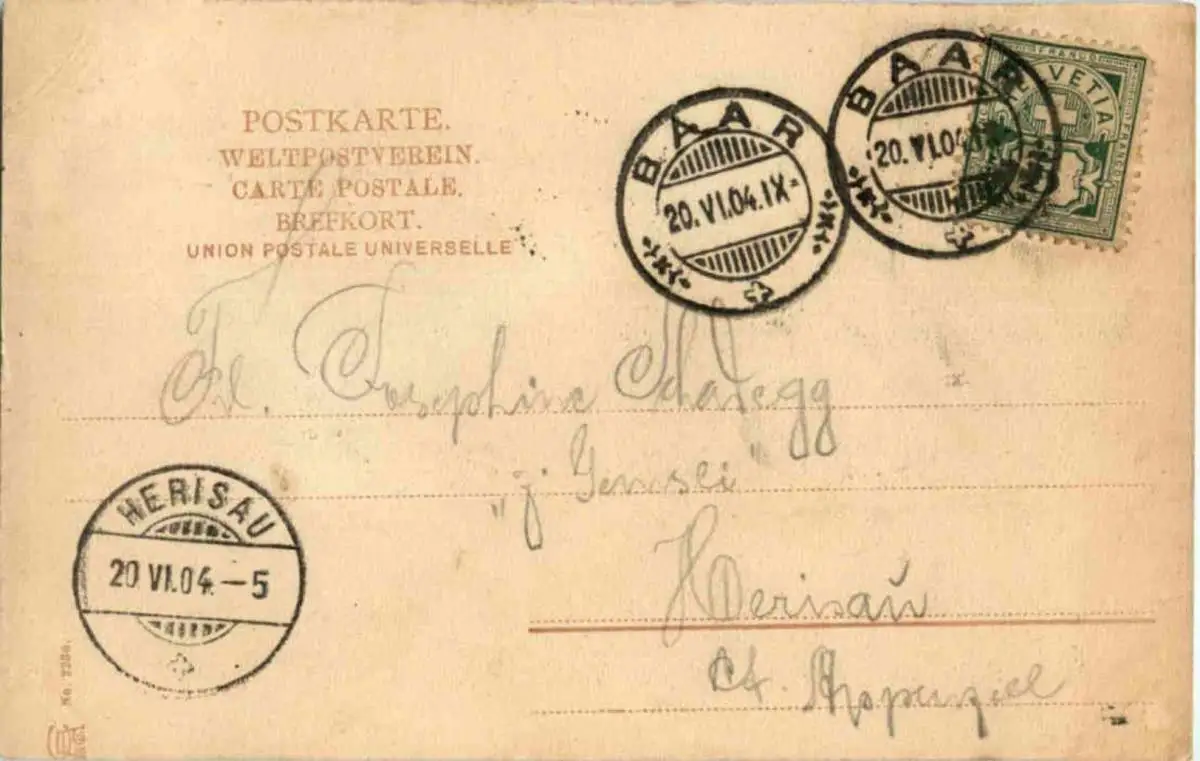 POSTKARTE.
WELTPOSTVEREIN.
CARTE POSTALE.
BREFKORT.
UNION POSTALE UNIVERSELLE
BAAR
20.VI.04.IX
BAAR
20.VI.04.IX
FRANCO
HELVETIA
Frl. Josephine Schafegg
"z. Gemsli"
HERISAU
20 VI.04.-5
Herisau
Ct. Appenzell
No. 2256.